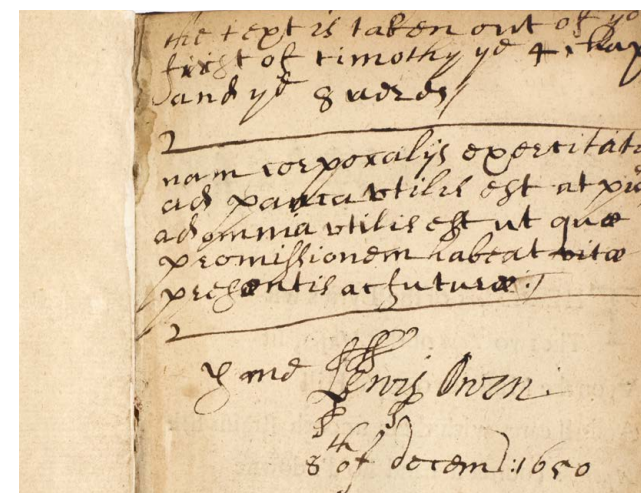 the text is taken out of ye
first of timothy ye 4 chap
and ye 8 verse
nam corporalis exercitati
ad pauca vtilis est at pi
ad omnia vtilis est ut quæ
promissionem habeat vitæ
presentis ac futuræ.
Lewis Owen
8th of decem: 1650